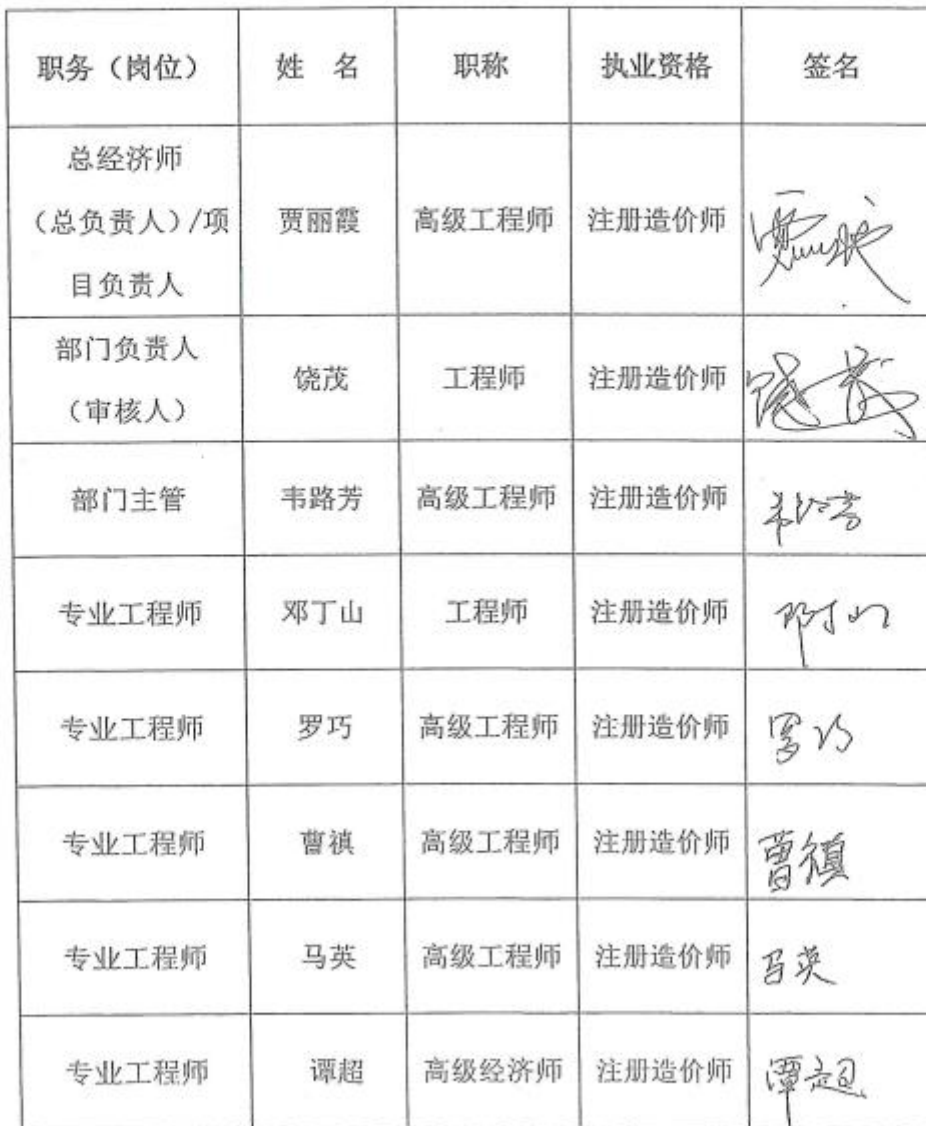 职务（岗位） 姓 名 职称 执业资格 签名
总经济师
（总负责人）/项 贾丽霞 高级工程师 注册造价师
目负责人
部门负责人
（审核人） 饶茂 工程师 注册造价师 饶茂
部门主管 韦路芳 高级工程师 注册造价师 韦路芳
专业工程师 邓丁山 工程师 注册造价师 邓丁山
专业工程师 罗巧 高级工程师 注册造价师 罗巧
专业工程师 曹禛 高级工程师 注册造价师 曹禛
专业工程师 马英 高级工程师 注册造价师 马英
专业工程师 谭超 高级经济师 注册造价师 谭超